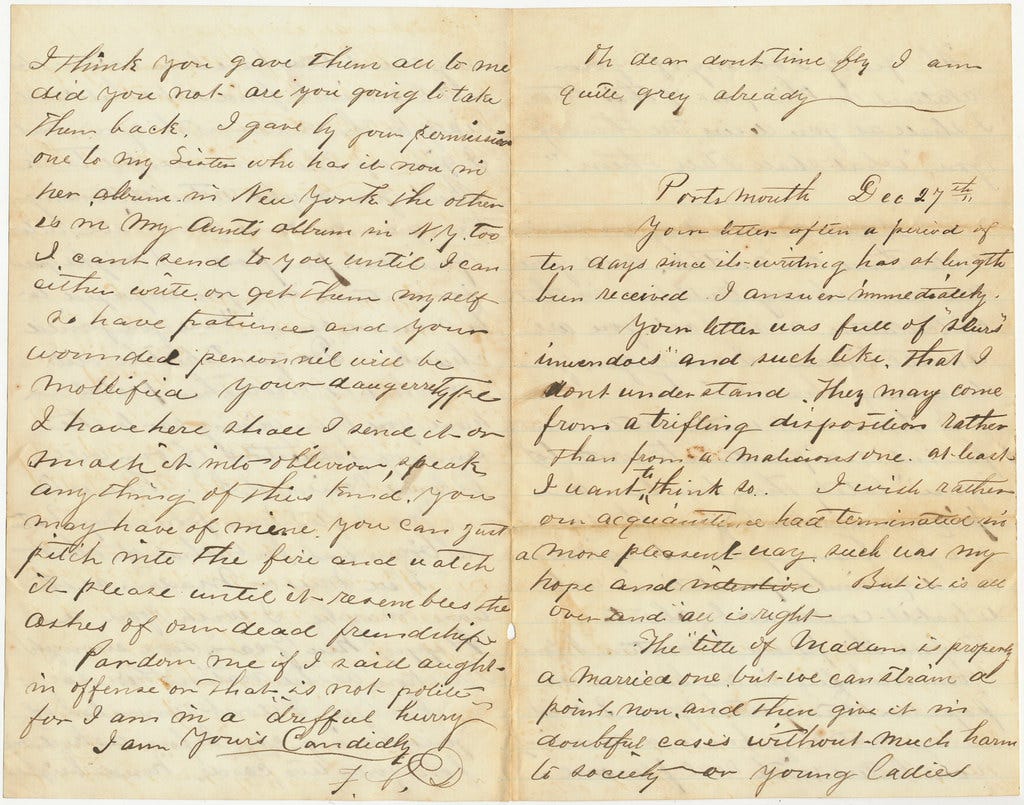 I think you gave them all to me
did you not are you going to take
them back. I gave by your permission
one to my Sister who has it now in
her album in New York the other
is in my Aunts album in N.Y. too
I cant send to you until I can
either write or get them myself
so have patience and your
wounded personnil will be
mollified your daugerrityple
I have here shall I send it or
smash it into oblivion, speak
anything of this kind, you
may have of mine you can just
pitch into the fire and watch
it please until it resembles the
ashes of our dead freindship
Pardom me if I said aught
in offense or that is not polite
for I am in a "drefful hurry"
I am Yours Candidly
Oh dear dont time fly I am
quite grey already
Portsmouth Dec 27th
Your letter after a period of
ten days since its writing has at length
been received I answer immediately.
Your letter was full of "slurs"
inuendoes" and such like, that I
dont understand. They may come
from a trifling disposition rather
than from a malicious one. at least
I want to think so.. I wish rather
our acquaintence had terminated in
a more pleasent way such was my
hope and intention But it is all
over and all is right
The title of Madam is properly
a married one but we can strain a
point now and then give it in
doubtful cases without much harm
to society or young ladies